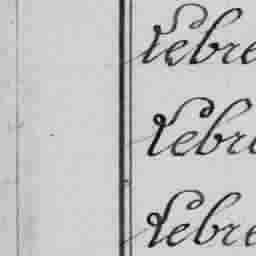 Febre
Febre
Febre